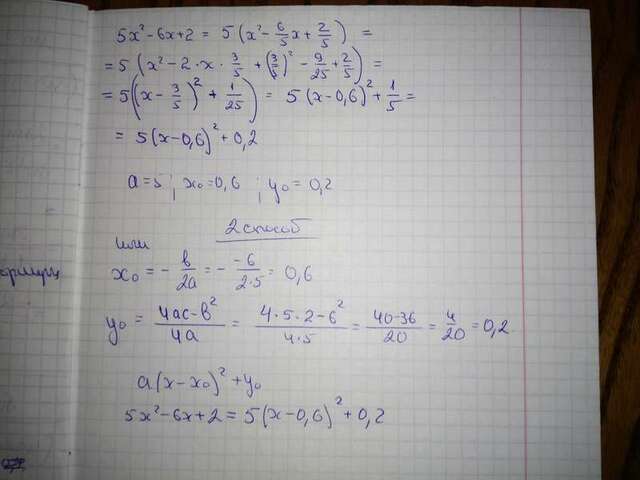 5x² - 6x + 2 = 5(x² - 6/5 x + 2/5) =
= 5(x² - 2·x·3/5 + (3/5)² - 9/25 + 2/5) =
= 5((x - 3/5)² + 1/25) = 5(x - 0,6)² + 1/5 =
= 5(x - 0,6)² + 0,2
a = 5; x₀ = 0,6; y₀ = 0,2
2 способ
или
x₀ = - в/2a = - -6/2·5 = 0,6
y₀ = 4ac - в²/4a = 4·5·2 - 6²/4·5 = 40-36/20 = 4/20 = 0,2
a(x - x₀)² + y₀
5x² - 6x + 2 = 5(x - 0,6)² + 0,2